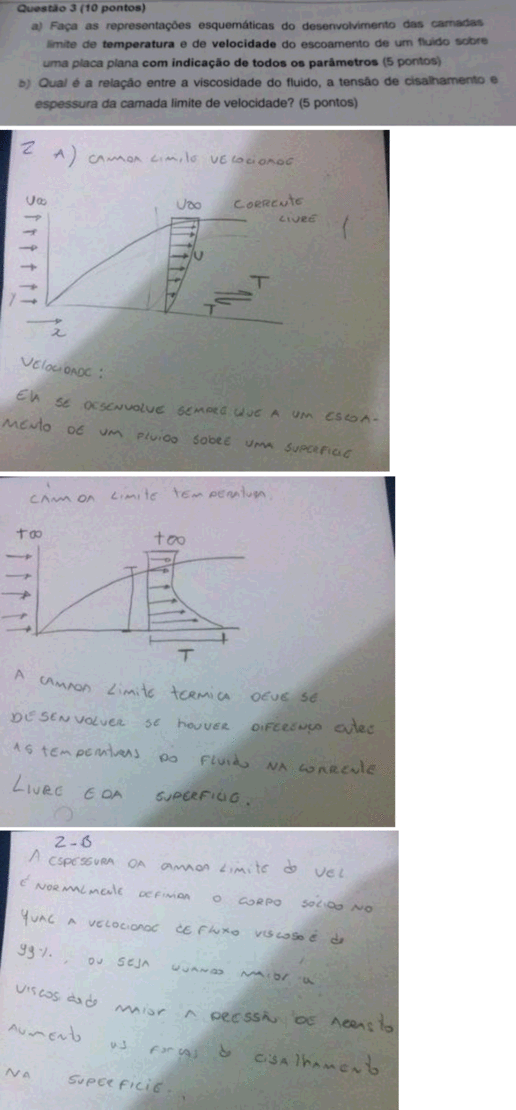 Questão 3 (10 pontos)
a) Faça as representações esquemáticas do desenvolvimento das camadas
limite de temperatura e de velocidade do escoamento de um fluido sobre
uma placa plana com indicação de todos os parâmetros (5 pontos)
b) Qual é a relação entre a viscosidade do fluido, a tensão de cisalhamento e
espessura da camada limite de velocidade? (5 pontos)
2 A) CAMADA LIMITE VELOCIDADE
U∞ U∞ CORRENTE
LIVRE
U
T
T
y
x
VELOCIDADE:
ELA SE DESENVOLVE SEMPRE QUE A UM ESCOA-
MENTO DE UM FLUIDO SOBRE UMA SUPERFICIE
CAMADA LIMITE TEMPERATURA.
T∞ T∞
T
A CAMADA LIMITE TERMICA DEVE SE
DESENVOLVER SE HOUVER DIFERENÇA ENTRE
AS TEMPERATURAS DO FLUIDO NA CORRENTE
LIVRE E DA SUPERFICIE.
2-B
A ESPESSURA DA CAMADA LIMITE do VEL
É NORMALMENTE DEFINIDA O CORPO SÓLIDO NO
QUAL A VELOCIDADE DE FLUXO VISCOSO É de
99%, OU SEJA QUANDO MAIOR a
VISCOSIDADE MAIOR A PRESSÃO DE
AUMENTO AS FORÇAS D CISALHAMENTO
NA SUPERFICIE.